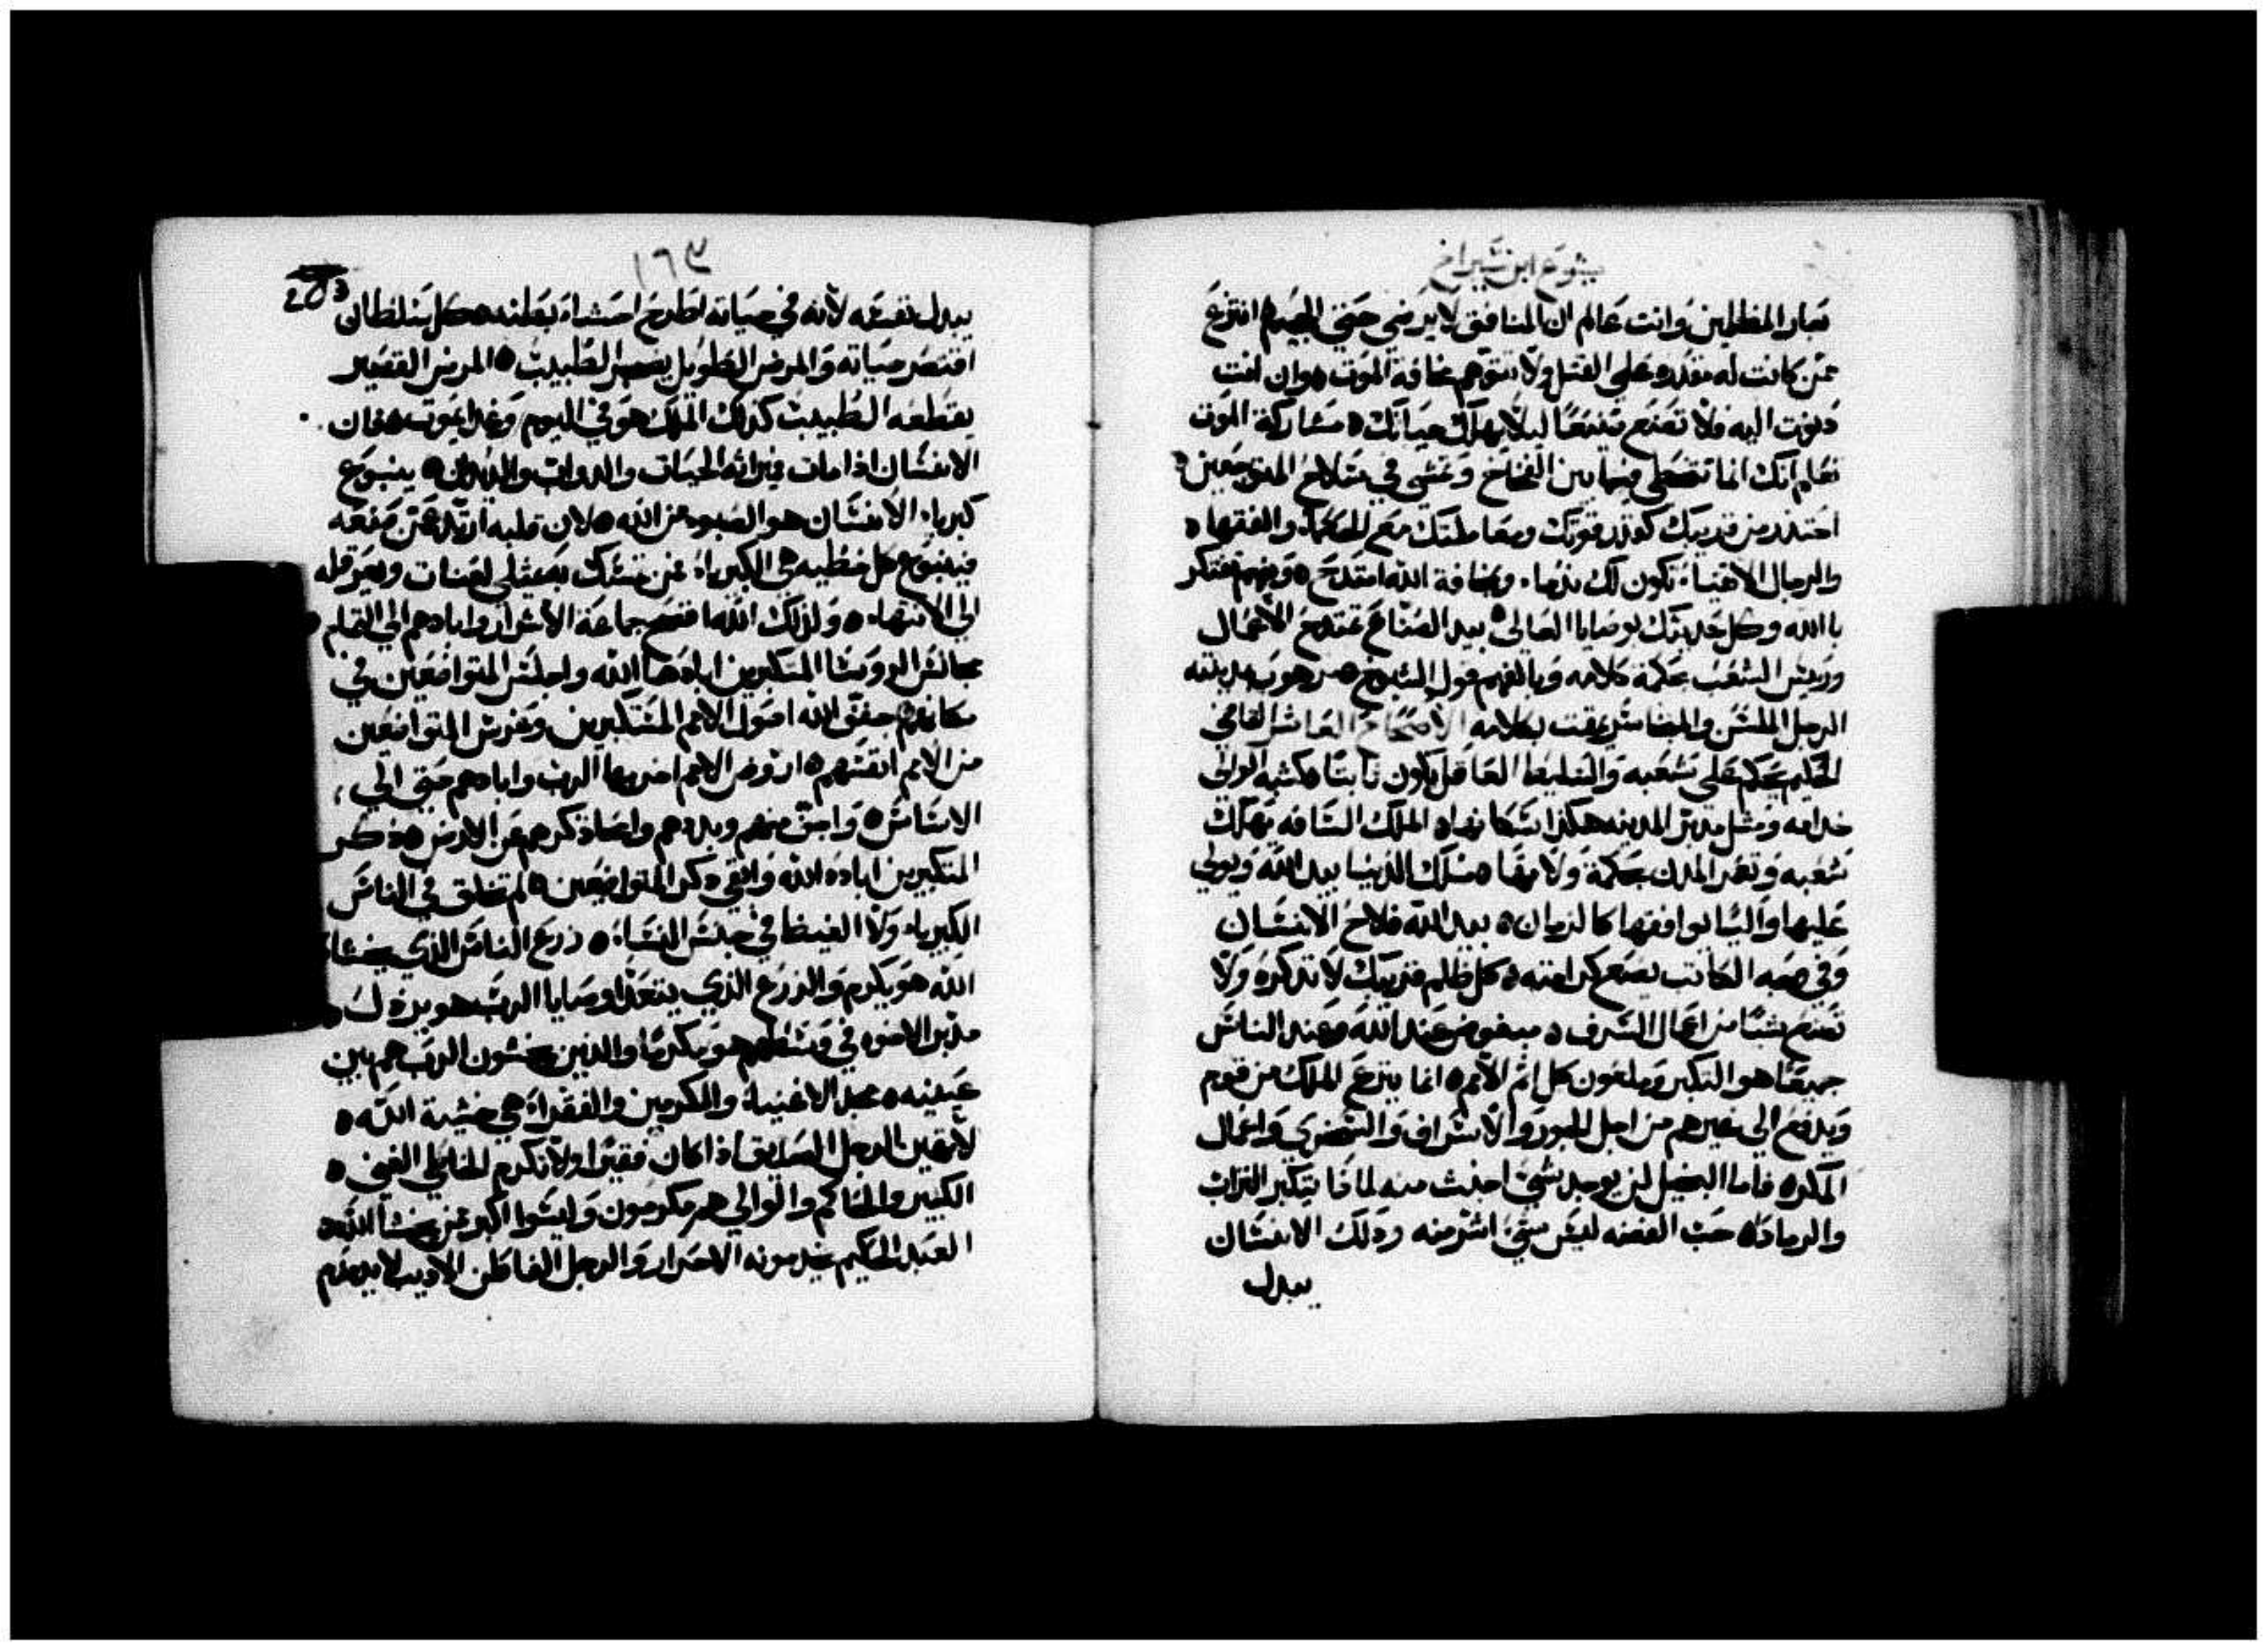 يشوع ابن شيراخ
تعار المظلمين وانت عالم ان المنافق لا يرضي حتي الجحيم افترع
ممن كانت له مقدره علي القتل ولا تتوهم مخافة الموت وان انت
دنوت اليه فلا تصنع شيعًا ليلا يهلك حياتك مشاركة الموت
تعلم انك انما تتخطي فيما بين الفخاخ وتمشي في سلاح المتوجعين
احتذر من قريبك كقدر قوتك ومعاملتك مع الحكما والفقها
والرجال الاتقياء تكون لك ندما وبمخافة الله امتدح وبفهم تفتكر
باالله وكل حديثك بوصايا العالي بيد الصناع تمتدح الاعمال
وريس الشعب بحكمة كلامه وبالفهم قول الشيوخ مرهوب بمدينته
الرجل الملسن والمخاشر يمقت بكلامه الاصحاح العاشر القاضي
الحكيم يحكم علي شعبه والسليط العاقل يكون ثابتا كشبه الوالي
خدامه ومثل مدبر المدينه هكذا سكانها الملك السافه يهلك
شعبه وتعمر المدن بحكمة ولاتها مسلك الدنيا بيد الله ويولي
عليها والياً يوافقها كالزمان بيد الله فلاح الانسان
وفي وجه الكاتب يضع كرامته كل ظلم قريبك لا تذكره ولا
تصنع شيًا من اعمال السرف مبغوض عند الله وعند الناس
جميعًا هو التكبر وملعون كل اثم الامم انما ينزع الملك من قوم
ويدفع الي غيرهم من اجل الجور والاسراف والتضري واعمال
المكره فاما البخيل لن يوجد شي اخبث منه لماذا يتكبر التراب
والرماد حب الفضه ليس شي اشر منه وذلك الانسان
يبدل
١٦٣
203
يبدل نفسه لانه في حياته اطرح احشاه بعلنه كل سلطان
اقتصر حياته والمرض الطويل يضجر الطبيب المرض القصير
يقطعه الطبيب كذلك الملك هو في اليوم وغدا يموت فان
الانسان اذا مات فيراثه الحيات والدواب والديدان ينبوع
كبرياء الانسان هو الصبو من الله لان قلبه ارتد عمن صنعه
فينبوع كل خطيه هي الكبرياء فمن تمسك به يمتلي لعنات ويعرقله
الي الانتهاء ولذلك الله افضح جماعة الاشرار وابادهم الي التمام
مجالس الروسا المتكبرين ابادها الله واجلس المتواضعين في
مكانهم جفف الله اصول الامم المتكبرين وغرس المتواضعين
من الامم انفسهم اروض الامم اخربها الرب وابادهم حتي الي
الاساس وابس منهم وبددهم واباد ذكرهم من الارض ذكر
المتكبرين اباده الله وابقي ذكر المتواضعين لم تخلق في الناس
الكبرياء ولا الغيظ في جنس النساء زرع الناس الذي يخشا
الله هو يكرم والزرع الذي يتعدا وصايا الرب هو يرذل
مدبر الاخوه في وسطهم هو مكرمًا والذين يخشون الرب هم بين
عينيه مجد الاغنياء والمكرمين والفقراء هي خشية الله
لا تهين الرجل الصديق اذا كان فقيرا ولا تكرم الخاطي الغني
الكبير والحاكم والوالي هم مكرمون وليسوا اكبر ممن يخشا الله
العبد الحكيم يخدمونه الاحرار والرجل الفاطن الاديب لا يتذمر